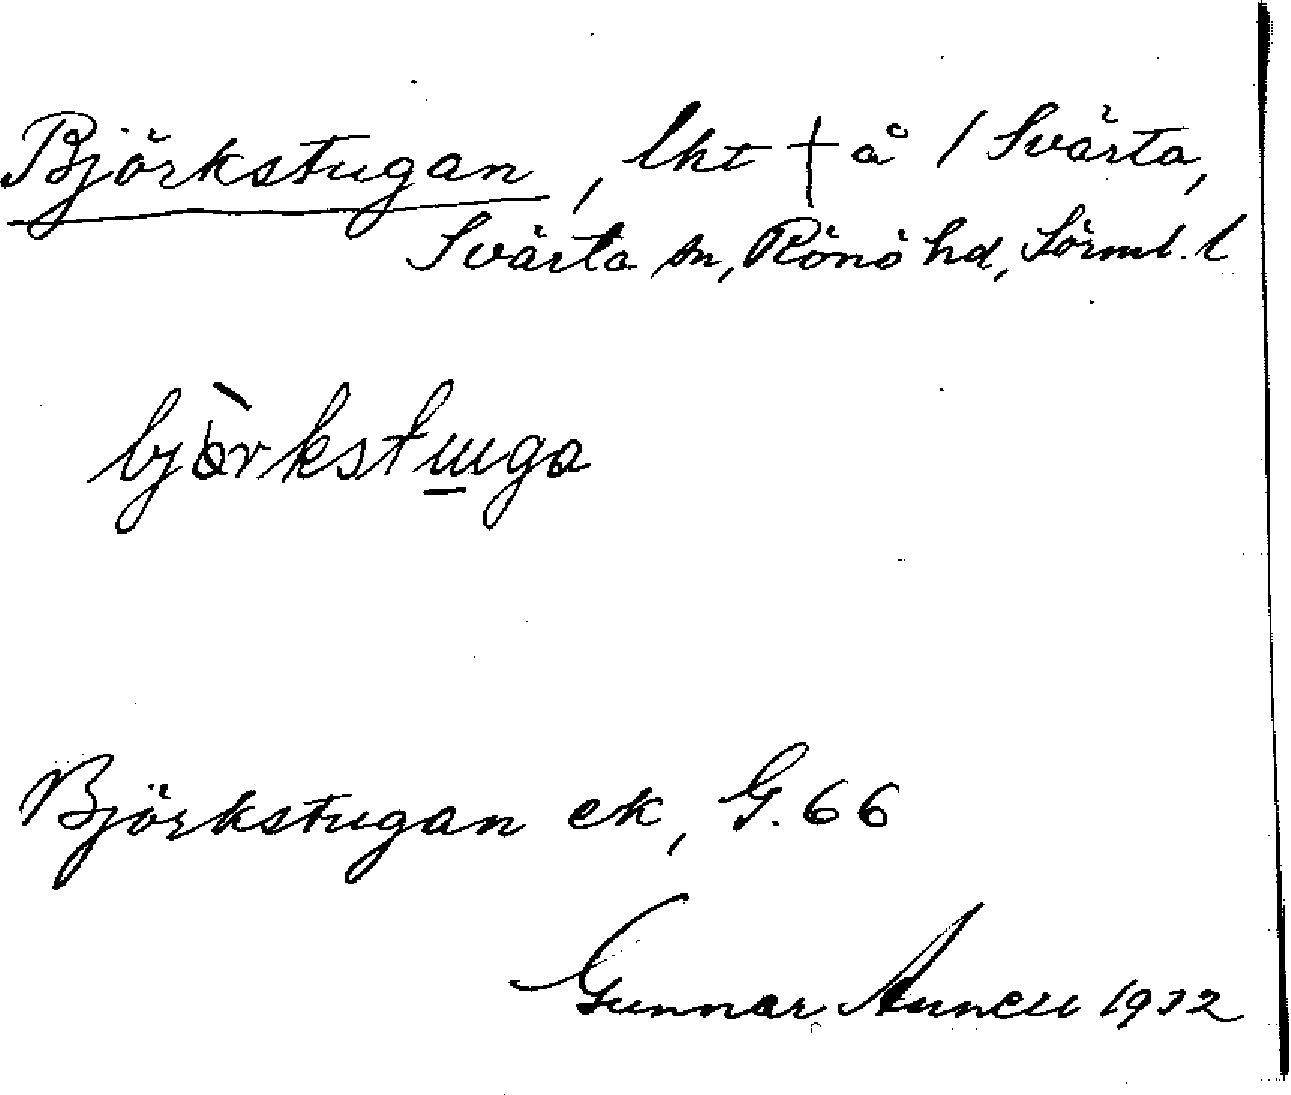 Björkstugan, lht † å / Svärta,
Svärta sn, Rönö hd, Sörml. l
bjòrkstuga
Björkstugan ek, G. 66
Gunnar 1932